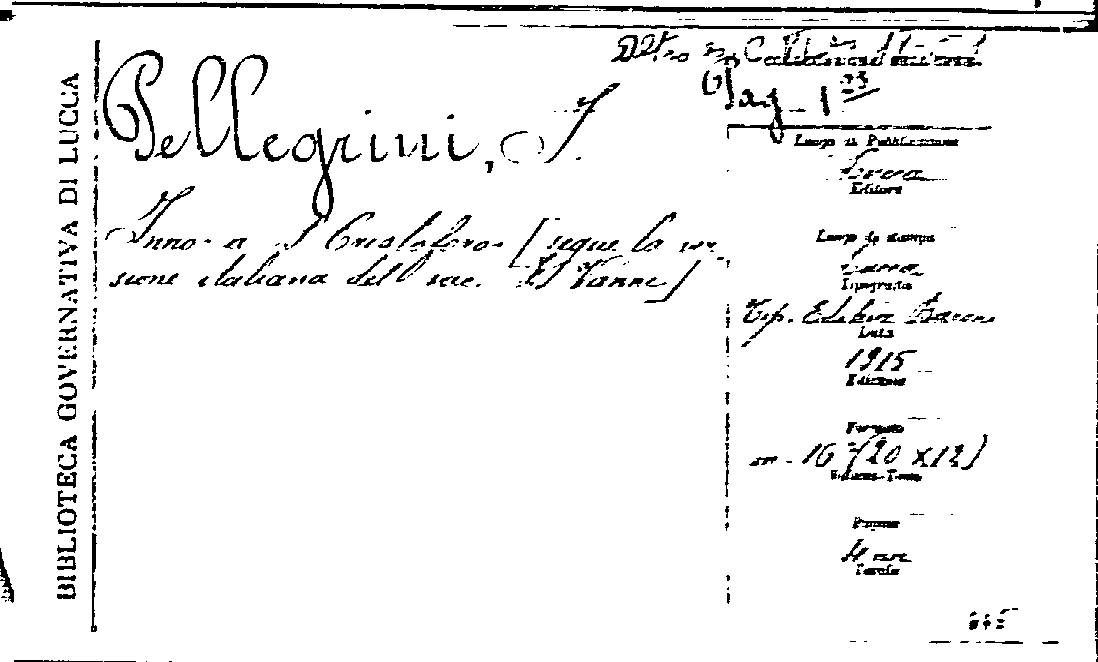 BIBLIOTECA GOVERNATIVA DI LUCCA
Pellegrini, I.
Inno a S. Cristoforo [segue la ver-
sione italiana del sac. Vanni]
Pag. 1
Luogo di Pubblicazione
Lucca
Editore
Luogo di stampa
Lucca
Tipografia
Tip. Baroni
Data
1915
Edizione
Formato
in-16° (20 x 12)
Volume-Tomo
Pagine
Tavole